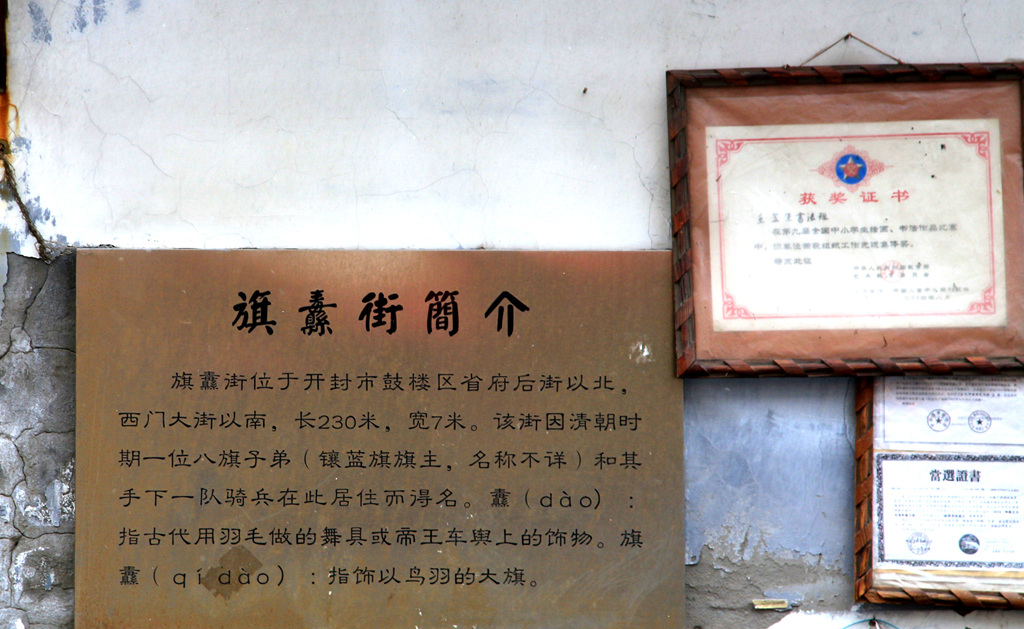 旗纛街簡介
旗纛街位于开封市鼓楼区省府后街以北，
西门大街以南，长230米，宽7米。该街因清朝时
期一位八旗子弟（镶蓝旗旗主，名称不详）和其
手下一队骑兵在此居住而得名。纛（dào）：
指古代用羽毛做的舞具或帝王车舆上的饰物。旗
纛（qí dào）：指饰以鸟羽的大旗。
获奖证书
在第九届全国中小学生绘画、书法作品比赛
中，
特发此证
當選證書